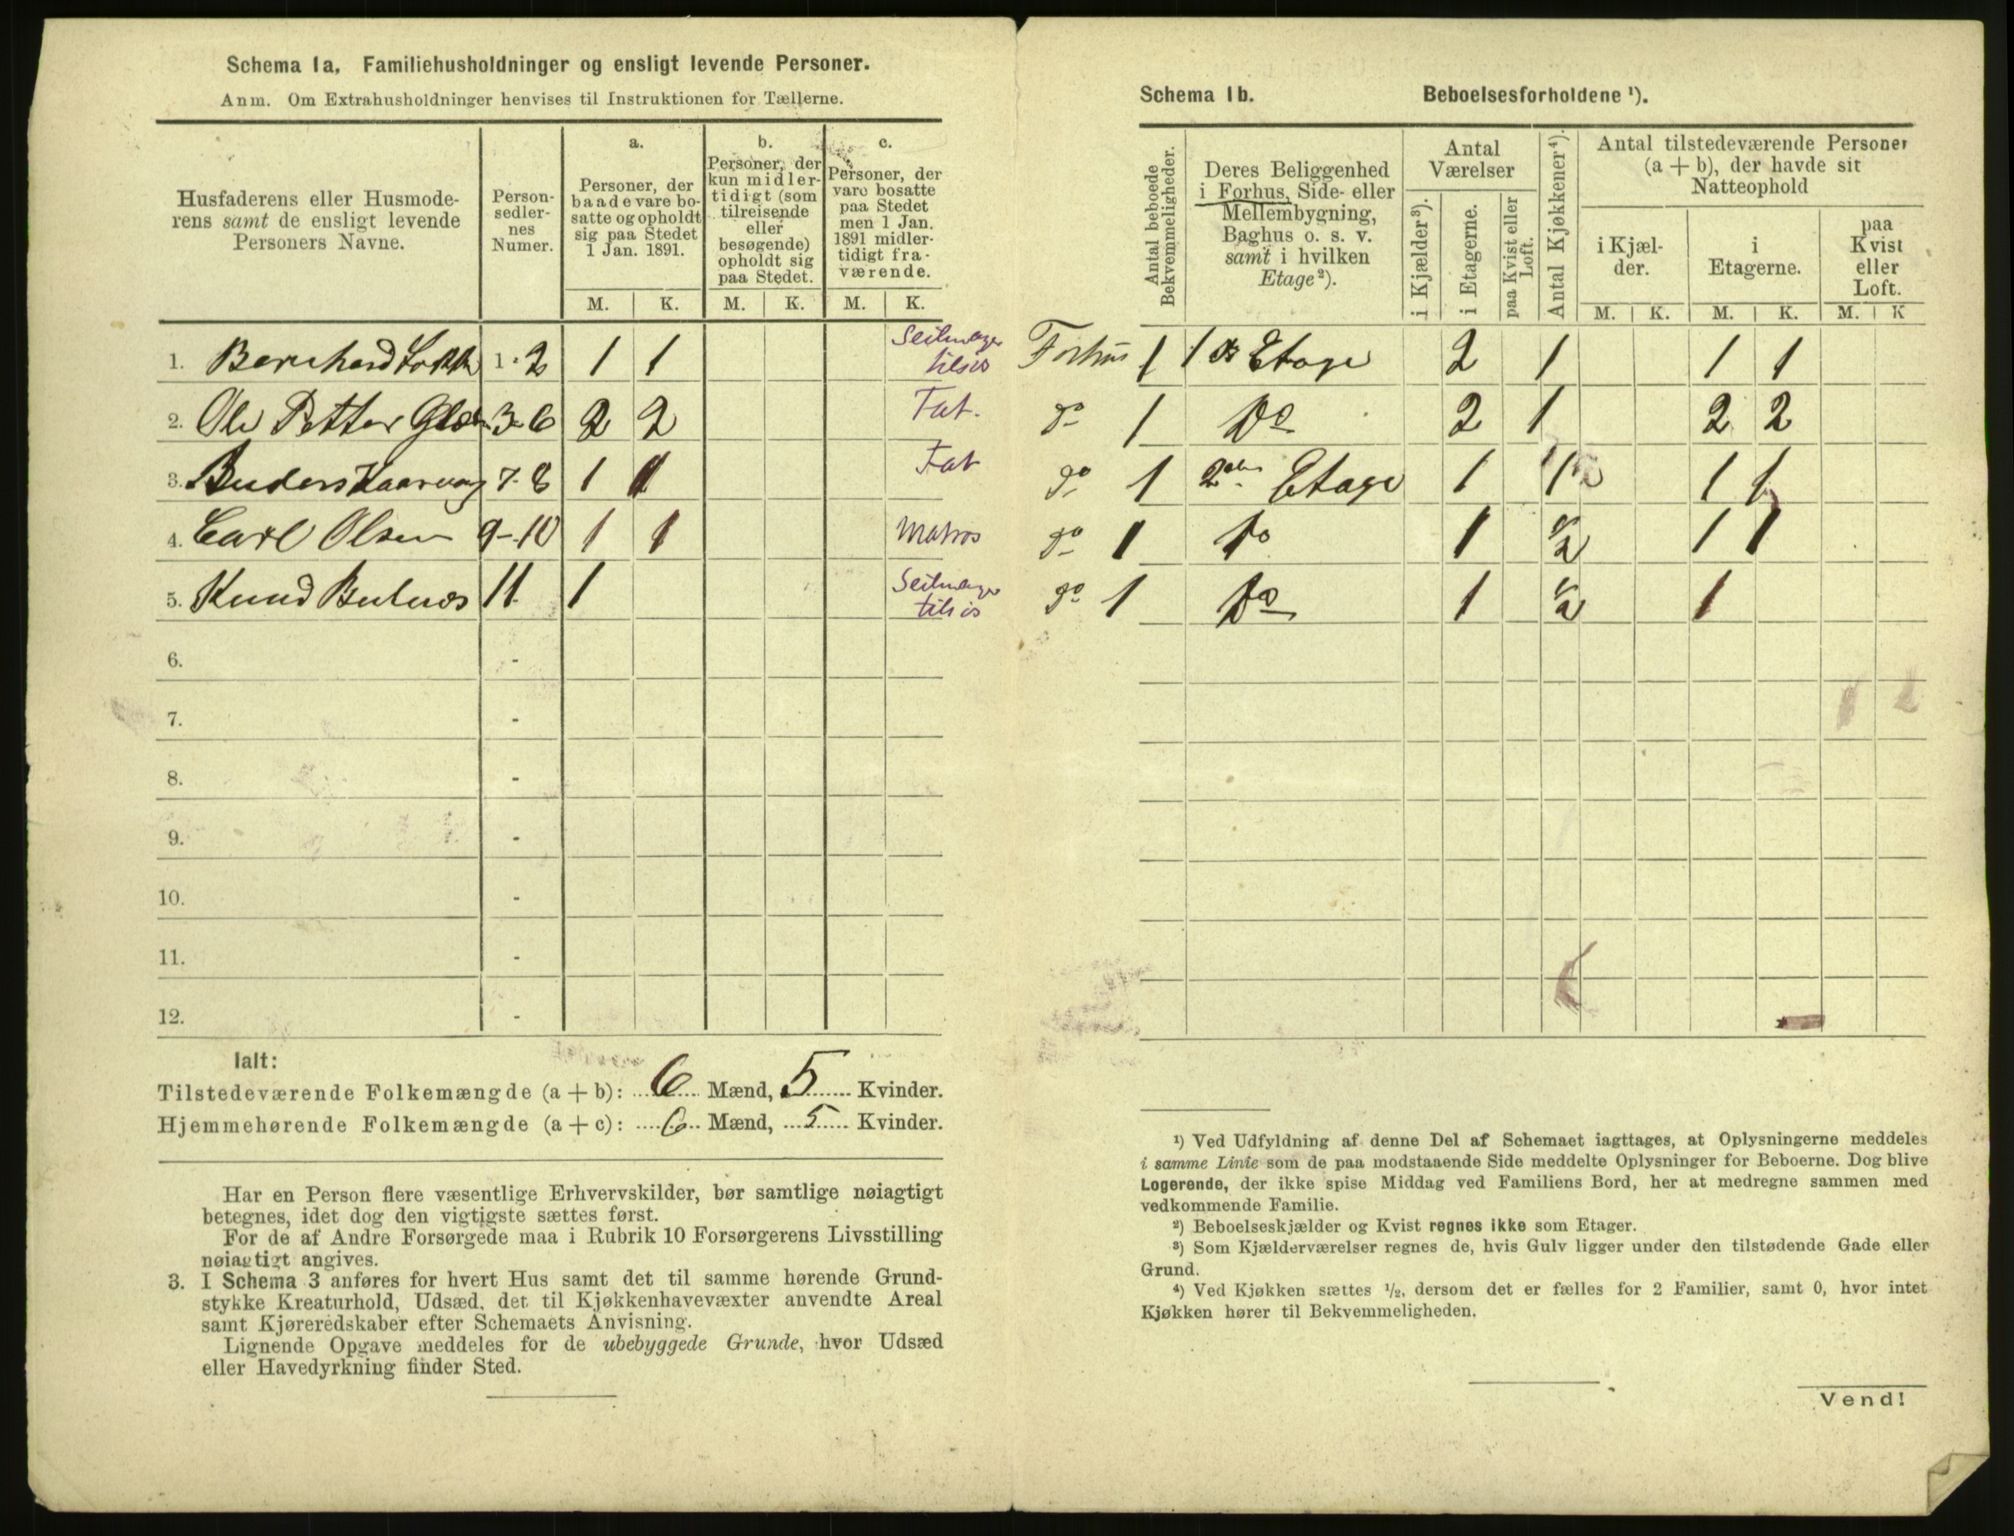 Schema 1a. Familiehusholdninger og ensligt levende Personer.
Anm. Om Extrahusholdninger henvises til Instruktionen for Tællerne.
Husfaderens eller Husmoderens samt de ensligt levende Personers Navne.
Personsedlernes Numer.
a.
Personer, der baade vare bosatte og opholdt sig paa Stedet 1 Jan. 1891.
b.
Personer, der kun midlertidigt (som tilreisende eller besøgende) opholdt sig paa Stedet.
c.
Personer, der vare bosatte paa Stedet men 1 Jan. 1891 midlertidigt fraværende.
M. K. M. K. M. K.
1. Bernhard 1-2 1 1 Seilmager
2. Ole Petter 3-6 2 2 Fat.
3. Anders 7-8 1 1 Fat
4. Carl Olsen 9-10 1 1 Matros
5. Knud 11 1 Seilmager
6. -
7. -
8. -
9. -
10. -
11. -
12. -
Ialt:
Tilstedeværende Folkemængde (a + b): 6 Mænd, 5 Kvinder.
Hjemmehørende Folkemængde (a + c): 6 Mænd, 5 Kvinder.
Har en Person flere væsentlige Erhvervskilder, bør samtlige nøiagtigt
betegnes, idet dog den vigtigste sættes først.
For de af Andre Forsørgede maa i Rubrik 10 Forsørgerens Livsstilling
nøiagtigt angives.
3. I Schema 3 anføres for hvert Hus samt det til samme hørende Grund-
stykke Kreaturhold, Udsæd, det til Kjøkkenhavevæxter anvendte Areal
samt Kjøreredskaber efter Schemaets Anvisning.
Lignende Opgave meddeles for de ubebyggede Grunde, hvor Udsæd
eller Havedyrkning finder Sted.
Schema 1b. Beboelsesforholdene ¹).
Antal beboede Bekvemmeligheder.
Deres Beliggenhed i Forhus, Side- eller Mellembygning, Baghus o. s. v. samt i hvilken Etage²).
Antal Værelser
i Kjælder³).
i Etagerne.
paa Kvist eller Loft.
Antal Kjøkkener⁴).
Antal tilstedeværende Personer (a + b), der havde sit Natteophold
i Kjælder.
i Etagerne.
paa Kvist eller Loft.
M. K. M. K. M. K
Forhus 1 1 Etage 2 1 1 1
do 1 Do 2 1 2 2
do 1 2den Etage 1 1/2 1 1
do 1 Do 1 1/2 1 1
do 1 Do 1 1/2 1
¹) Ved Udfyldning af denne Del af Schemaet iagttages, at Oplysningerne meddeles
i samme Linie som de paa modstaaende Side meddelte Oplysninger for Beboerne. Dog blive
Logerende, der ikke spise Middag ved Familiens Bord, her at medregne sammen med
vedkommende Familie.
²) Beboelseskjælder og Kvist regnes ikke som Etager.
³) Som Kjælderværelser regnes de, hvis Gulv ligger under den tilstødende Gade eller
Grund.
⁴) Ved Kjøkken sættes ½, dersom det er fælles for 2 Familier, samt 0, hvor intet
Kjøkken hører til Bekvemmeligheden.
Vend!